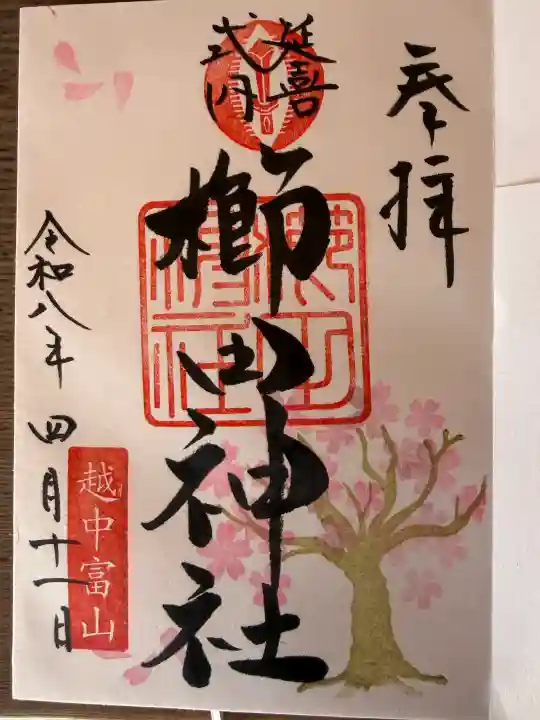 奉拝
延喜
式内
櫛田神社
令和八年 四月十一日
越中富山